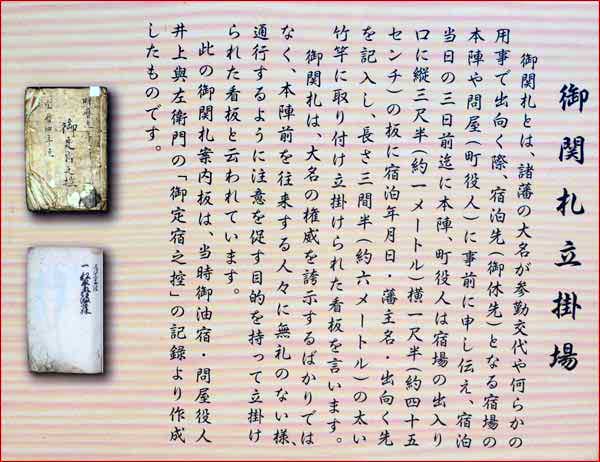 御関札立掛場
御関札とは、諸藩の大名が参勤交代や何らかの
用事で出向く際、宿泊先(御休先)となる宿場の
本陣や問屋(町役人)に事前に申し伝え、宿泊
当日の三日前迄に本陣、町役人は宿場の出入り
口に縦三尺半(約一メートル)横一尺半(約四十五
センチ)の板に宿泊年月日・藩主名・出向く先
を記入し、長さ三間半(約六メートル)の太い
竹竿に取り付け立掛けられた看板を言います。
御関札は、大名の権威を誇示するばかりでは
なく、本陣前を往来する人々に無礼のない様、
通行するように注意を促す目的を持って立掛け
られた看板と云われています。
此の御関札案内板は、当時御油宿・問屋役人
井上與左衛門の「御定宿之控」の記録より作成
したものです。
御定宿之控